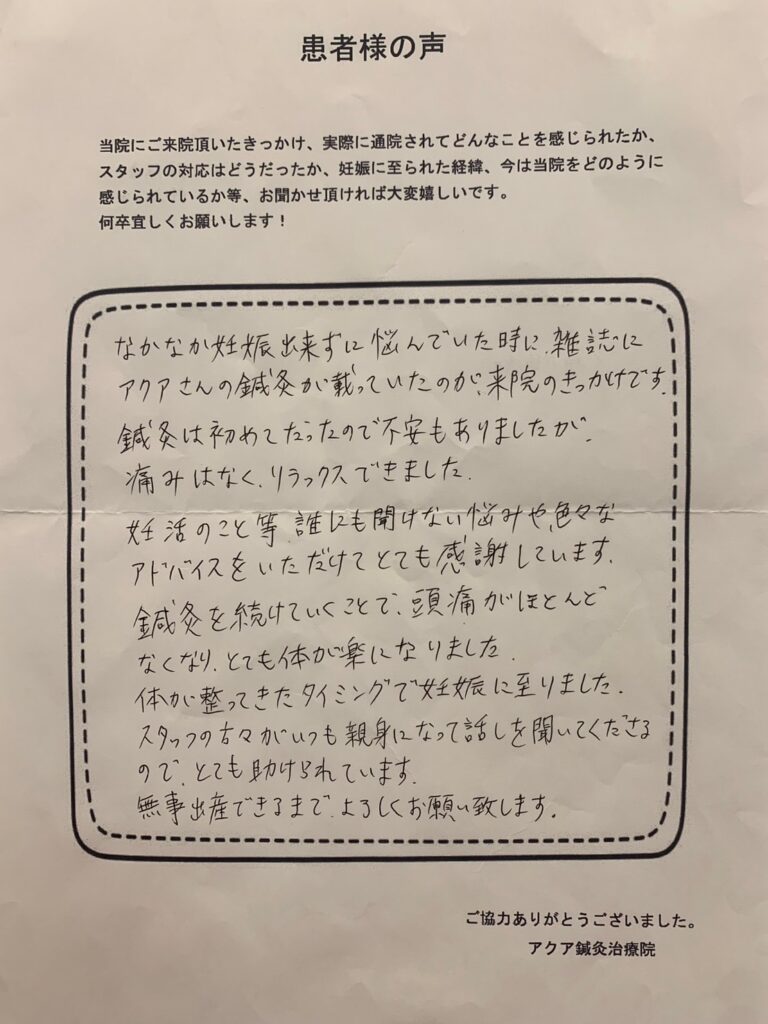 患者様の声
当院にご来院頂いたきっかけ、実際に通院されてどんなことを感じられたか、
スタッフの対応はどうだったか、妊娠に至られた経緯、今は当院をどのように
感じられているか等、お聞かせ頂ければ大変嬉しいです。
何卒宜しくお願いします！
なかなか妊娠出来ずに悩んでいた時に、雑誌に
アクアさんの鍼灸が載っていたのが、来院のきっかけです。
鍼灸は初めてだったので不安もありましたが、
痛みはなく、リラックスできました。
妊活のこと等、誰にも聞けない悩みや、色々な
アドバイスをいただけてとても感謝しています。
鍼灸を続けていくことで、頭痛がほとんど
なくなり、とても体が楽になりました。
体が整ってきたタイミングで妊娠に至りました。
スタッフの方々がいつも親身になって話しを聞いてくださる
ので、とても助けられています。
無事出産できるまで、よろしくお願い致します。
ご協力ありがとうございました。
アクア鍼灸治療院